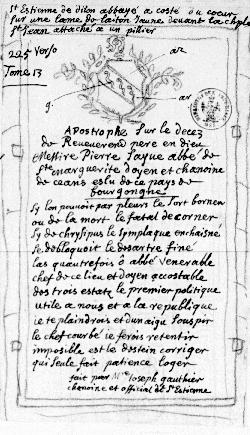 St Estienne de dilon abbayé a costé du coeur
sur une lame de laiton Jaune devant la chple
St Jean attaché a un pillier
225 Vor/o
az
Tome 13
g.
ar
Apostrophe Sur le decez
de Reveverend pere en dieu
Messire Pierre Saque abbé de
ste marguerite doyen et chanoine
de ceans eslu de ce païs de
bourgongne
Sy lon pouvoit par pleurs le Sort borner
ou de la mort le fatal decorner
Sy de chrysipus le Symplaque enchaisné
se debloquoit le desartre finé
las quatrefois ô abbé venerable
chef de ce lieu et doyen accostable
des trois estatz le premier politique
utile a nous et a la republique
ie te plaindrois et dun aigu Souspir
le chef courbé ie ferois retentir
imposible est le destein corriger
qui Seule fait patience loger
fait par Mre Joseph gauthier
chanoine et official de St Estienne